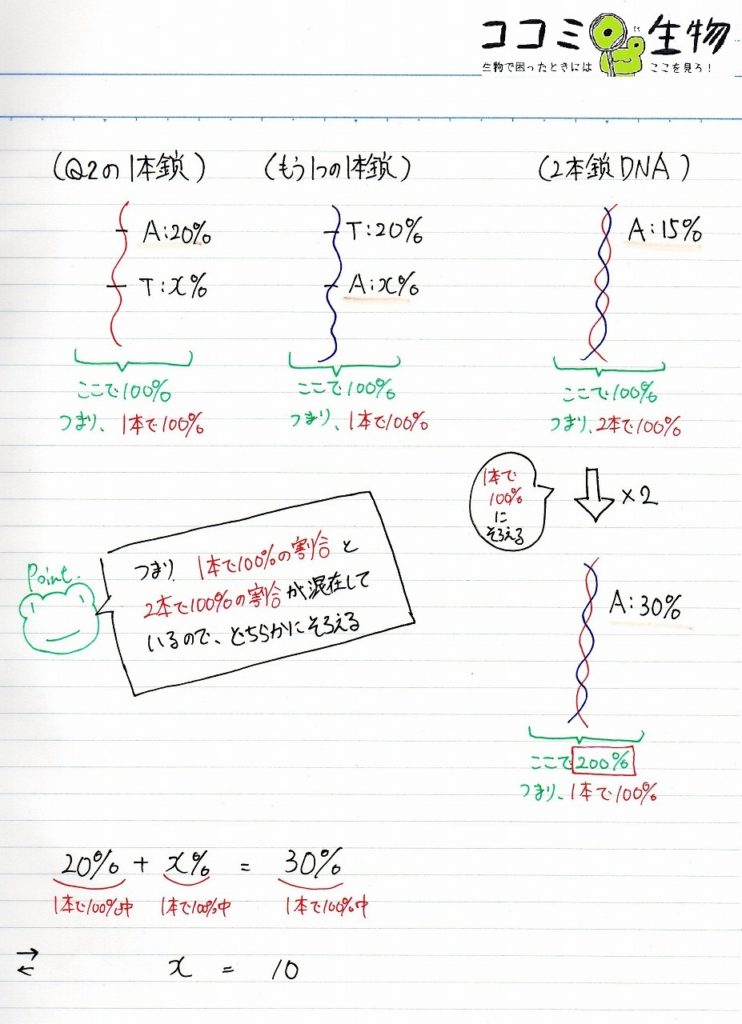 ココミ生物
生物で困ったときには ここを見ろ！
(Q2の1本鎖) (もう1つの1本鎖) (2本鎖DNA)
A:20% T:20% A:15%
T:x% A:x%
ここで100% ここで100% ここで100%
つまり、1本で100% つまり、1本で100% つまり、2本で100%
1本で
100%
に
そろえる
×2
Point.
つまり 1本で100%の割合と
2本で100%の割合が混在して
いるので、どちらかにそろえる
A:30%
ここで200%
つまり、1本で100%
20% + x% = 30%
1本で100%中 1本で100%中 1本で100%中
⇄ x = 10